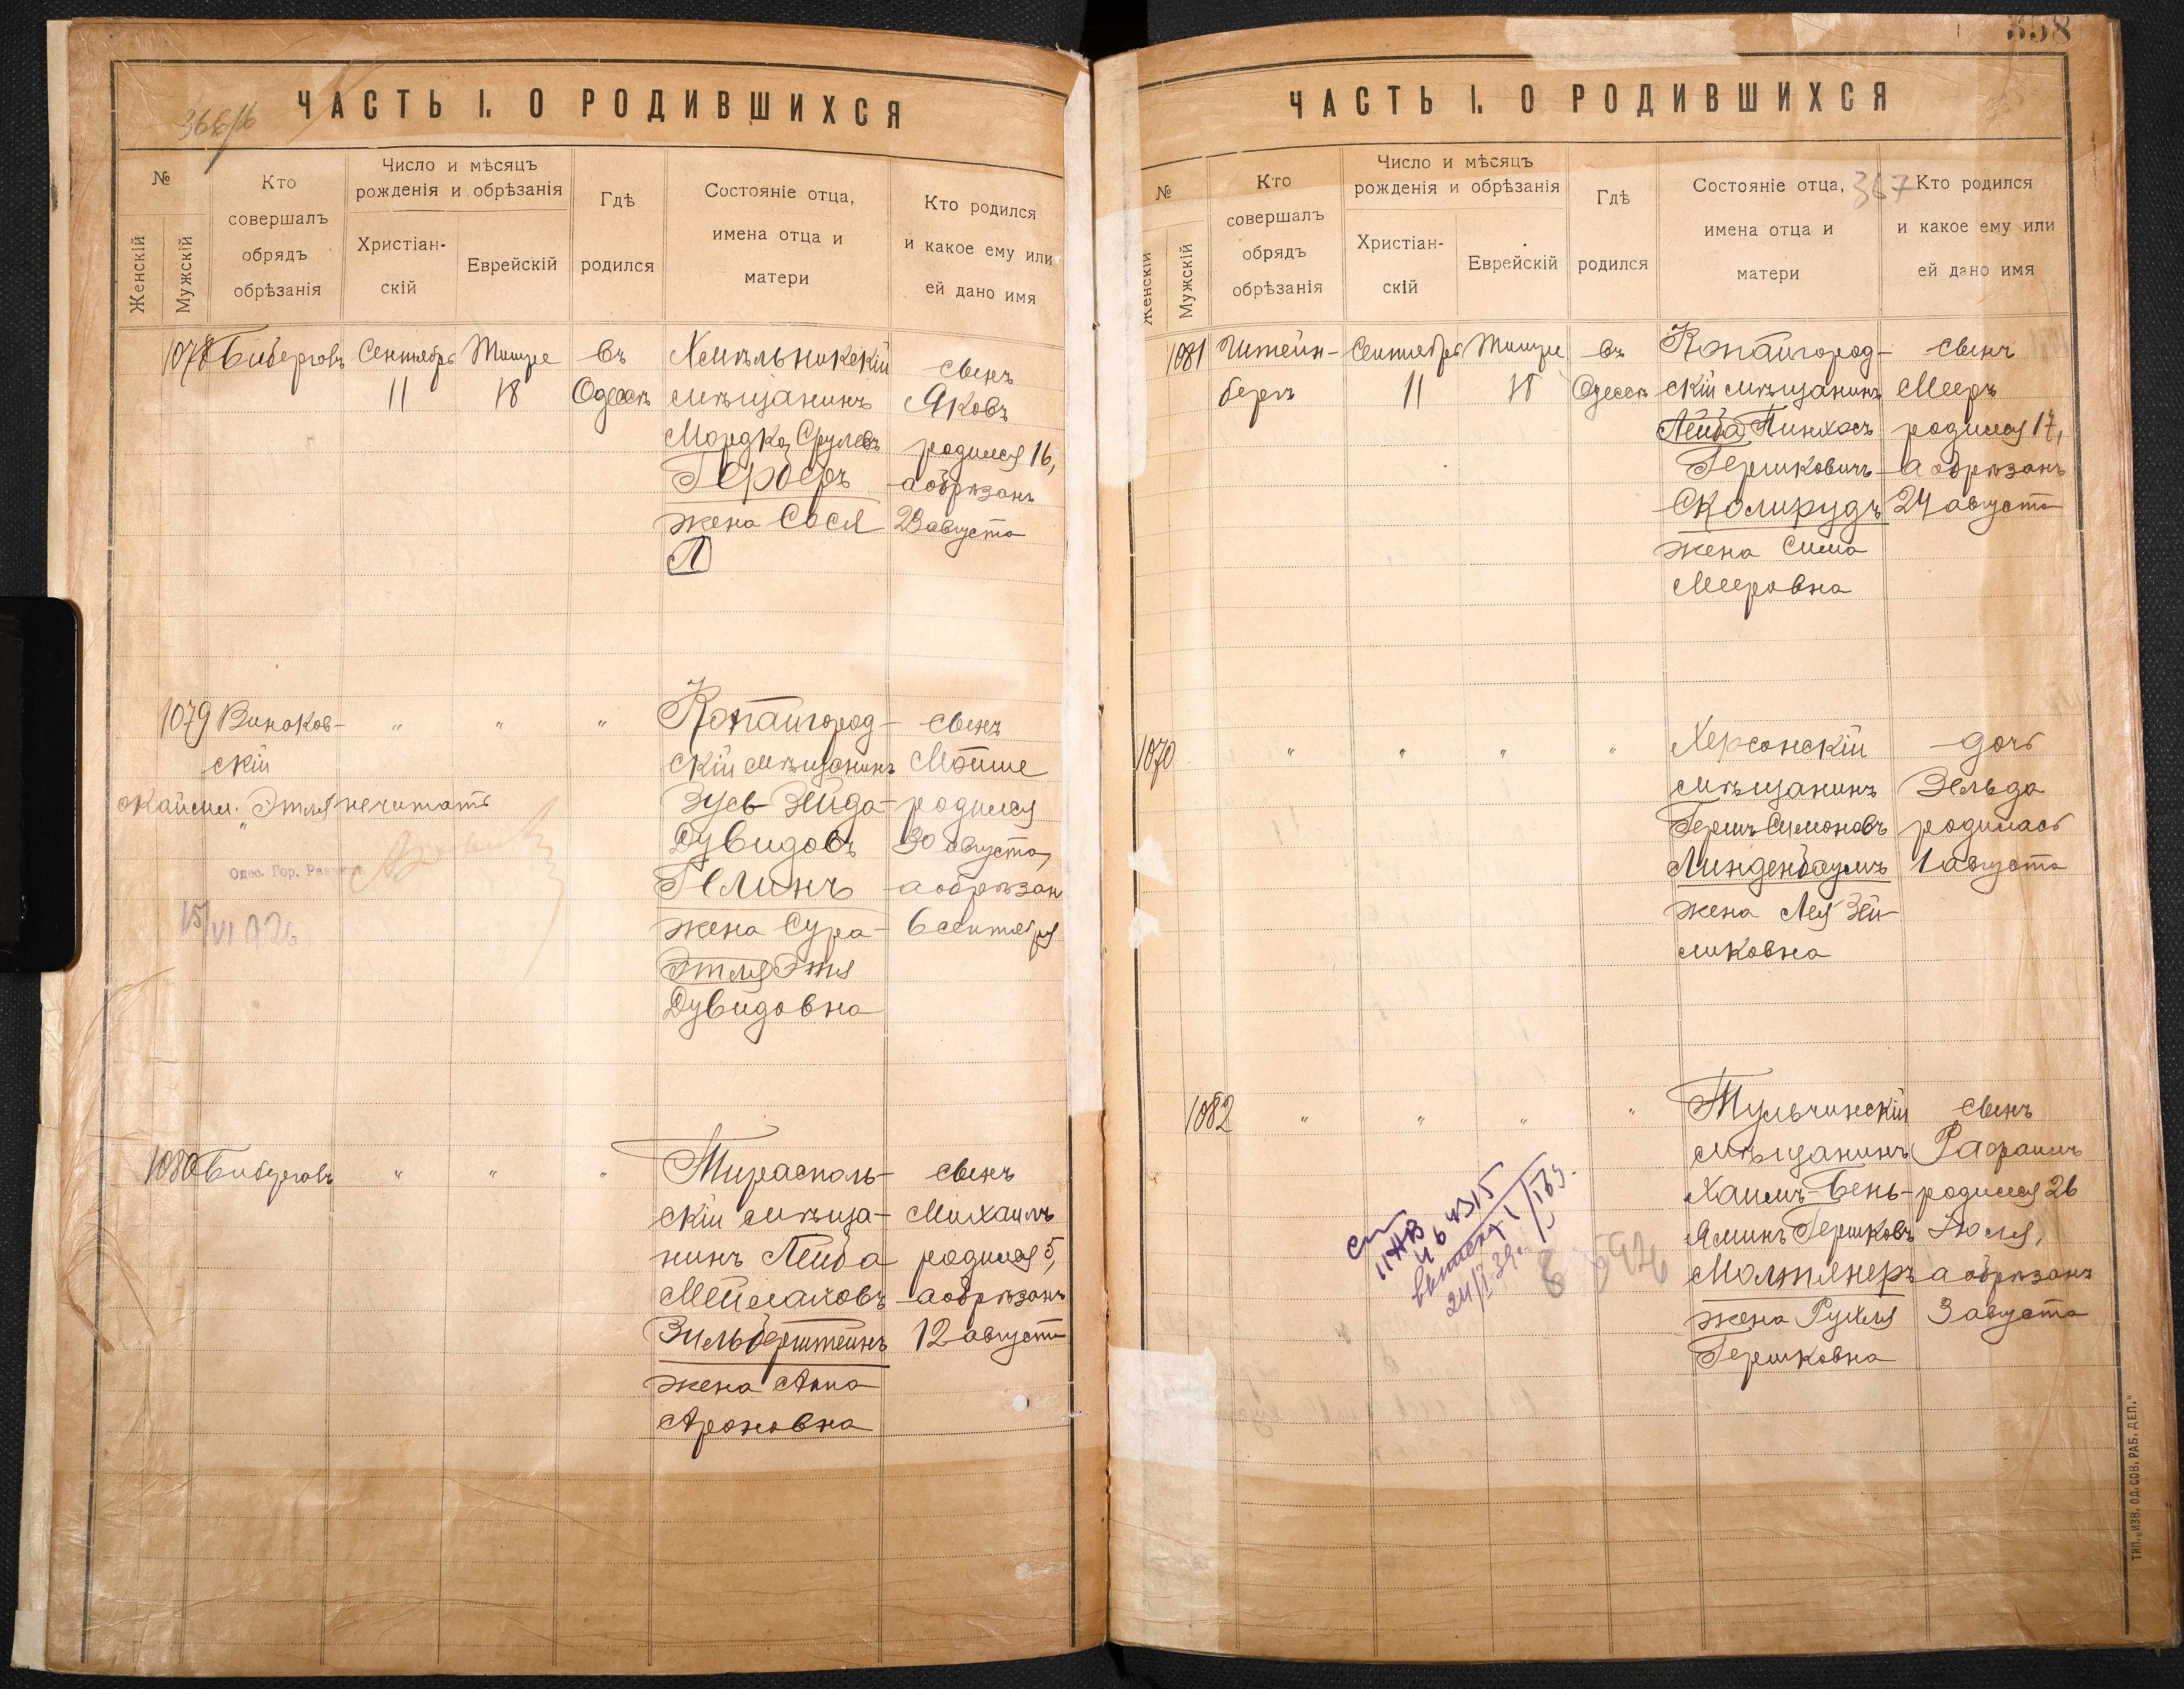 366/16
ЧАСТЬ I. О РОДИВШИХСЯ
№
Женскій
Мужскій
Кто
совершалъ
обрядъ
обрѣзанія
Число и мѣсяцъ
рожденія и обрѣзанія
Христіан-
скій
Еврейскій
Гдѣ
родился
Состояніе отца,
имена отца и
матери
Кто родился
и какое ему или
ей дано имя
1078
Бибергов
Сентябрь
11
Тишре
18
въ
Одессѣ
Хмѣльникскій
мѣщанинъ
Мордко Срулевъ
Герберъ
жена Сося
Л
сынъ
Яковъ
родился 16,
а обрѣзанъ
23 августа
1079
Виноков-
скій
"
"
"
Копайгород-
скій мѣщанинъ
Зусь-Зейда-
Дувидовъ
Гелинъ
жена Сура-
Этля Этя
Дувидовна
сынъ
Мойше
родился
30 августа,
а обрѣзан
6 сентября
Этля не читать
Одес. Гор. Раввин
15/VI 926
1080
Бибергов
"
"
"
Тирасполь-
скій мѣща-
нинъ Лейба
Мейлаховъ
Зильберштейнъ
жена Анна
Ароновна
сынъ
Михаилъ
родился 5,
а обрѣзанъ
12 августа
358
ЧАСТЬ I. О РОДИВШИХСЯ
367
№
Женскій
Мужскій
Кто
совершалъ
обрядъ
обрѣзанія
Число и мѣсяцъ
рожденія и обрѣзанія
Христіан-
скій
Еврейскій
Гдѣ
родился
Состояніе отца,
имена отца и
матери
Кто родился
и какое ему или
ей дано имя
1081
Штейн-
бергъ
Сентябрь
11
Тишре
18
въ
Одессѣ
Копайгород-
скій мѣщанинъ
Лейба Пинхосъ
Гершковичъ
Сколирудъ
жена Сима
Мееровна
сынъ
Мееръ
родился 17,
а обрѣзанъ
24 августа
1070
"
"
"
"
Херсонскій
мѣщанинъ
Гершъ Симоновъ
Линденбаумъ
жена Лея Зей-
ликовна
дочь
Зельда
родилась
1 августа
1082
"
"
"
"
Тульчинскій
мѣщанинъ
Хаимъ-Бень-
яминъ Гершковъ
Молтянеръ
жена Рухля
Гершковна
сынъ
Рафаилъ
родился 26
Іюля,
а обрѣзанъ
3 августа
ТИП. „ИЗВ. ОД. СОВ. РАБ. ДЕП."